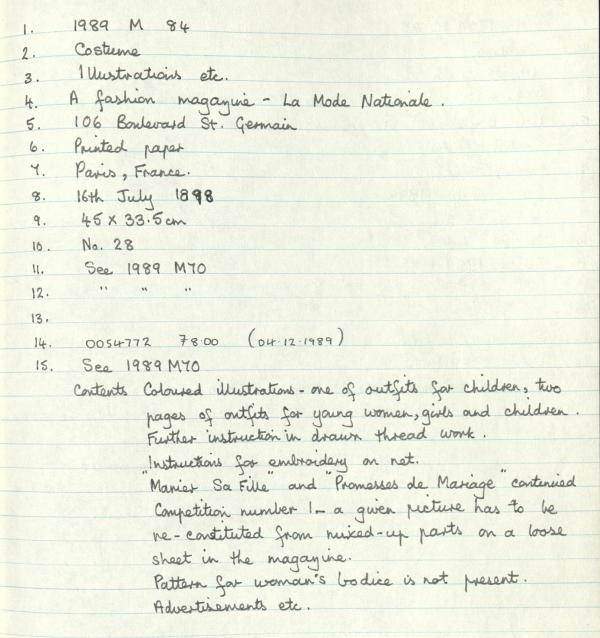 1. 1989 M 84
2. Costume
3. Illustrations etc.
4. A fashion magazine - La Mode Nationale.
5. 106 Boulevard St. Germain
6. Printed paper
7. Paris, France.
8. 16th July 1898
9. 45 x 33.5cm
10. No. 28
11. See 1989 M70
12. " " "
13.
14. 0054772 78.00 (04.12.1989)
15. See 1989 M70
Contents Coloured illustrations - one of outfits for children, two
pages of outfits for young women, girls and children.
Further instruction in drawn thread work.
Instructions for embroidery on net.
"Marier Sa Fille" and "Promesses de Mariage" continued
Competition number 1 - a given picture has to be
re-constituted from mixed-up parts on a loose
sheet in the magazine.
Pattern for woman's bodice is not present.
Advertisements etc.